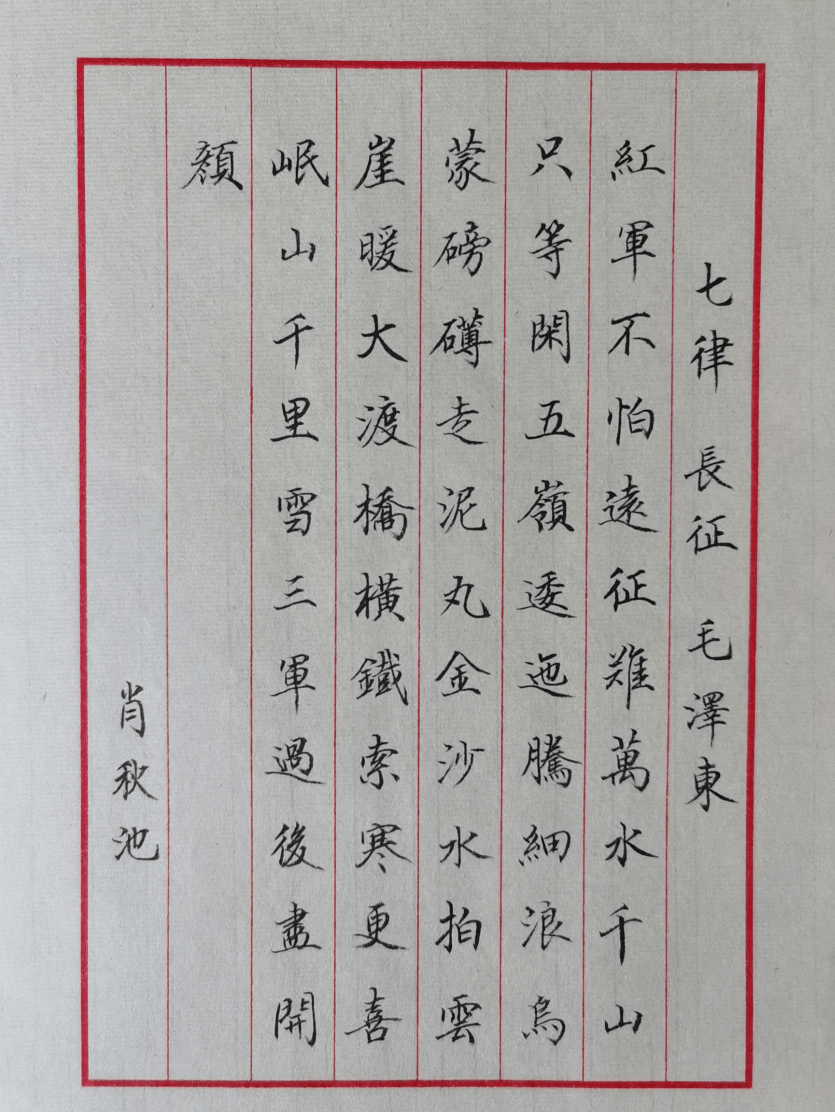 七律 長征 毛澤東
紅軍不怕遠征難萬水千山
只等閑五嶺逶迤騰細浪烏
蒙磅礴走泥丸金沙水拍雲
崖暖大渡橋橫鐵索寒更喜
岷山千里雪三軍過後盡開
顏
肖秋池